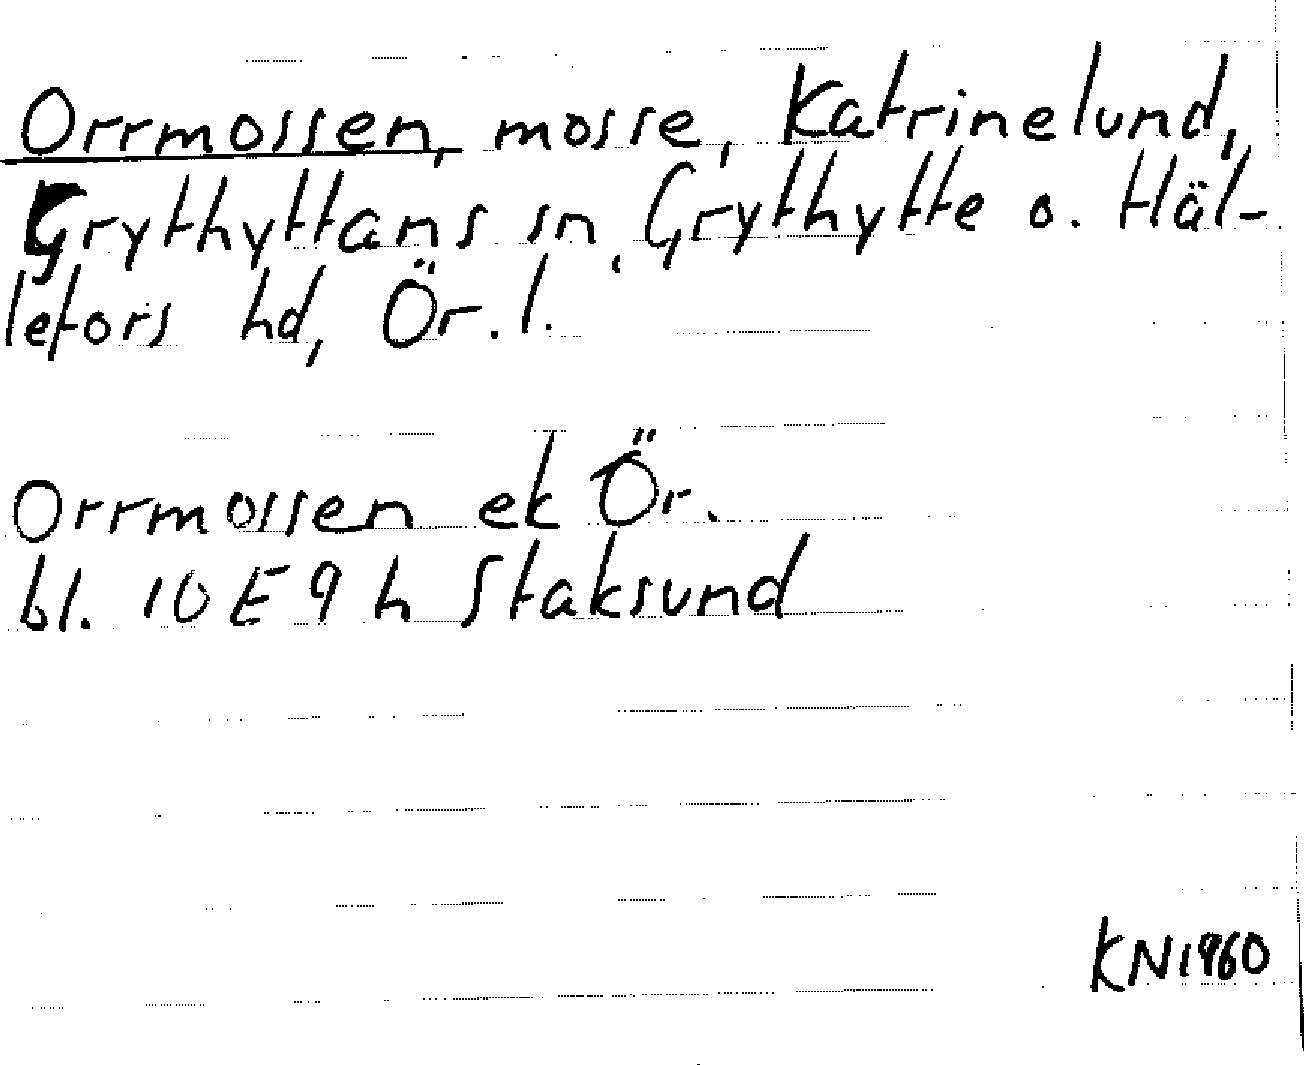 Orrmossen, mosse, Katrinelund,
Grythyttans sn, Grythytte o. Häl-
lefors hd, Ör. l.
Orrmossen ek Ör.
bl. 10 E 9 h Staksund
KN1960